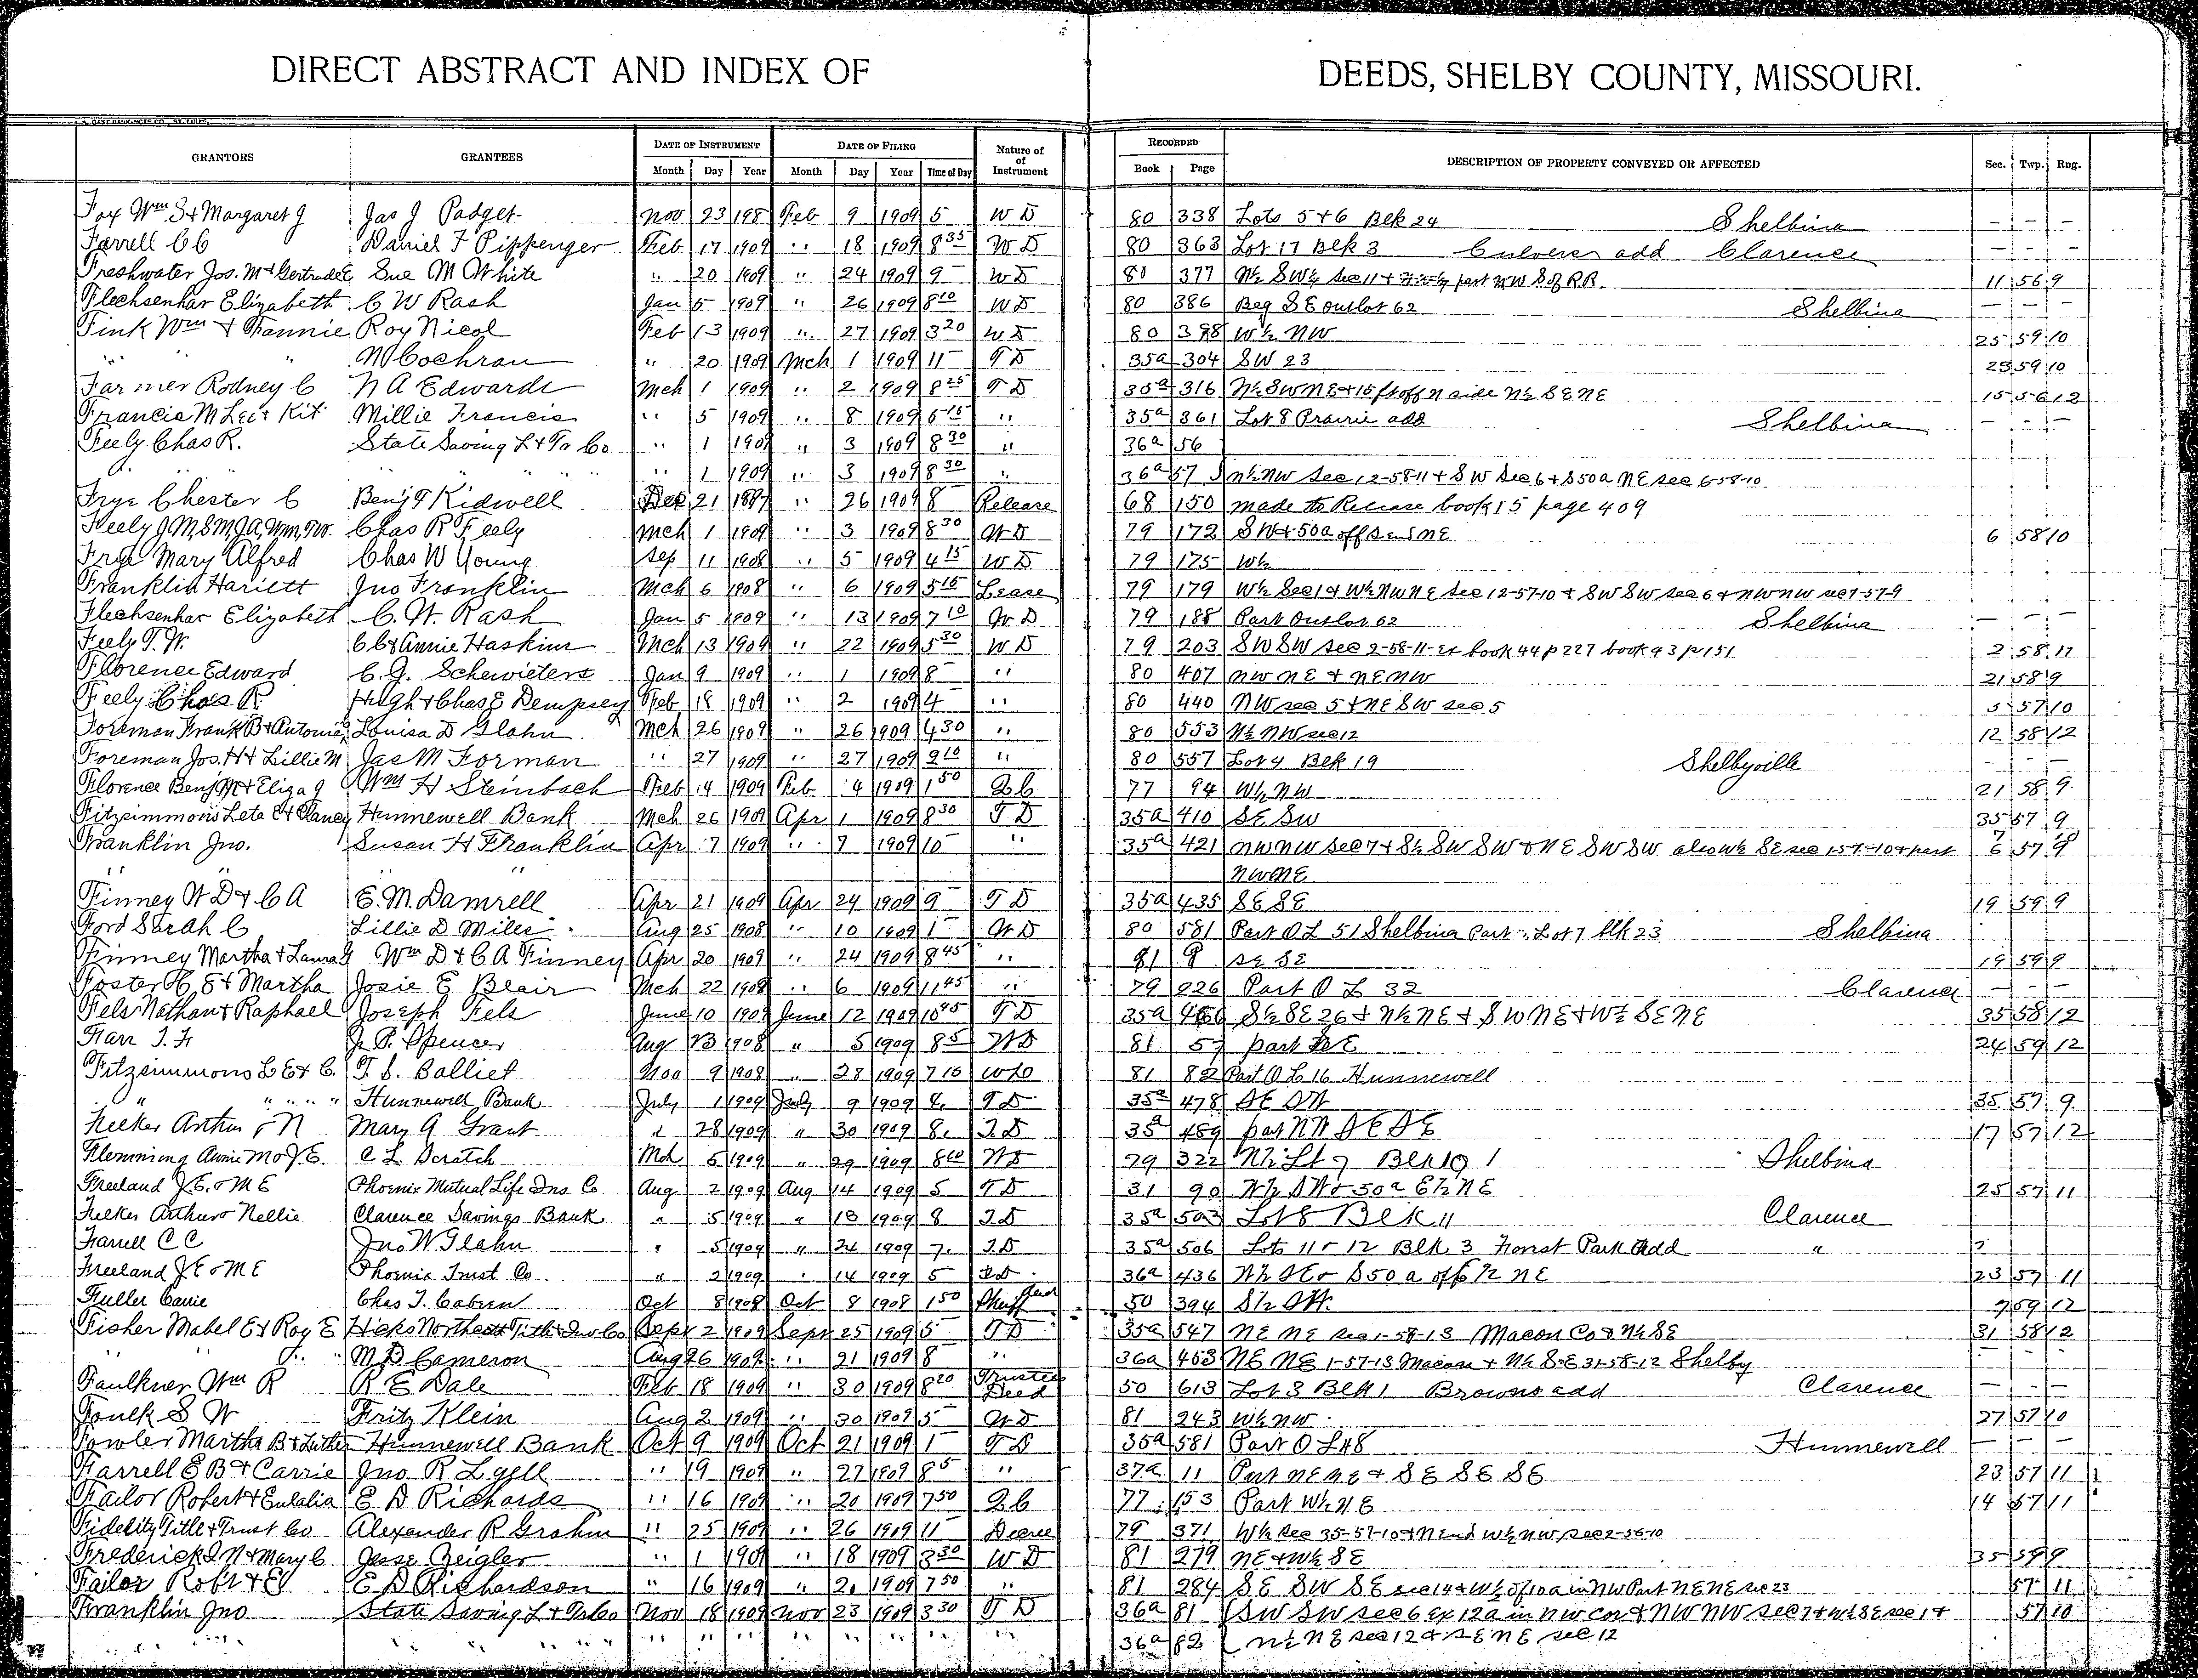 DIRECT ABSTRACT AND INDEX OF DEEDS, SHELBY COUNTY, MISSOURI.
GRANTORS GRANTEES DATE OF INSTRUMENT DATE OF FILING Nature of Instrument RECORDED DESCRIPTION OF PROPERTY CONVEYED OR AFFECTED Sec. Twp. Rng.
Month Day Year Month Day Year Time of Day Book Page
Fox Wm S + Margaret J Jas J Padget Nov 23 198 Feb 9 1909 5 WD 80 338 Lots 5+6 Blk 24 Shelbina — — —
Farrell C C Daniel F Pippenger Feb 17 1909 " 18 1909 8 35 WD 80 363 Lot 17 Blk 3 Culvers add Clarence — — —
Freshwater Jos. M + Gertrude E Sue M White " 20 1909 " 24 1909 9 WD 80 377 N½ SW¼ sec 11 + part NW S of RR 11 56 9
Flechsenhar Elizabeth C W Rash Jan 5 1909 " 26 1909 8 10 WD 80 386 Beg SE outlot 62 Shelbina — — —
Fink Wm + Fannie Roy Nicol Feb 13 1909 " 27 1909 3 20 WD 80 398 W½ NW 25 59 10
" " N Cochran " 20 1909 Mch 1 1909 11 TD 35a 304 SW 23 23 59 10
Farmer Rodney C N A Edwards Mch 1 1909 " 2 1909 8 25 TD 35a 316 N½ SW NE + 15 ft off N side N½ SE NE 15 56 12
Francis M Lee + Kit Millie Francis " 5 1909 " 8 1909 5 15 " 35a 361 Lot 8 Prairie add Shelbina — — —
Feely Chas R. State Saving L + Tr Co " 1 1909 " 3 1909 8 30 " 36a 56
" " " " " " 1 1909 " 3 1909 8 30 " 36a 57 N½ NW sec 12-58-11 + SW sec 6 + S50a NE sec 6-58-10
Frye Chester C Benj F Kidwell Dec 21 1897 " 26 1909 8 Release 68 150 made to Release book 15 page 409
Feely J M, S M, J A, Wm, T W. Chas R Feely Mch 1 1909 " 3 1909 8 30 WD 79 172 SW + 50a off S end NE 6 58 10
Frye Mary Alfred Chas W Young Sep 11 1908 " 5 1909 4 15 WD 79 175 W½
Franklin Hariett Jno Franklin Mch 6 1908 " 6 1909 5 15 Lease 79 179 W½ Sec 1 + W½ NW NE sec 12-57-10 + SW SW sec 6 + NW NW sec 7-57-9
Flechsenhar Elizabeth C. W. Rash Jan 5 1909 " 13 1909 7 10 WD 79 188 Part Outlot 62 Shelbina — — —
Feely T. W. C C + Annie Haskins Mch 13 1909 " 22 1909 5 30 WD 79 203 SW SW sec 2-58-11-Ex book 44 p 227 book 43 p 151 2 58 11
Florence Edward C. G. Schewieters Jan 9 1909 " 1 1909 8 " 80 407 NW NE + NE NW 21 58 9
Feely Chas. R. Hugh + Chas E Dempsey Feb 18 1909 " 2 1909 4 " 80 440 NW sec 5 + NE SW sec 5 5 57 10
Foreman Frank B + Antonia Louisa D Glahn Mch 26 1909 " 26 1909 4 30 " 80 553 N½ NW sec 12 12 58 12
Foreman Jos. H + Lillie M Jas M Forman " 27 1909 " 27 1909 9 10 " 80 557 Lot 4 Blk 19 Shelbyville — — —
Florence Benj W + Eliza J Wm H Steinbach Feb 4 1909 Feb 4 1909 1 50 QC 77 94 W½ NW 21 58 9
Fitzsimmons Leta E + Clancy Hunnewell Bank Mch 26 1909 Apr 1 1909 8 30 TD 35a 410 SE SW 35 57 9
Franklin Jno. Susan H Franklin Apr 7 1909 " 7 1909 10 " 35a 421 NW NW sec 7 + S½ SW SW + NE SW SW also W½ SE sec 1-57-10 + part 7 6 57 9
" " NW NE
Finney W D + C A E. M. Damrell Apr 21 1909 Apr 24 1909 9 TD 35a 435 SE SE 19 59 9
Ford Sarah C Lillie D Miles Aug 25 1908 " 10 1909 1 WD 80 581 Part OL 51 Shelbina Part Lot 7 blk 23 Shelbina
Finney Martha + Laura J Wm D + C A Finney Apr 20 1909 " 24 1909 8 45 " 81 9 SE SE 19 59 9
Foster H. E + Martha Josie E Blair Mch 22 1908 " 6 1909 11 45 " 79 226 Part O L 32 Clarence — — —
Fels Nathan + Raphael Joseph Fels June 10 1909 June 12 1909 10 45 TD 35a 460 S½ SE 26 + N½ NE + SW NE + W½ SE NE 35 58 12
Farr T. F. J. P. Spencer Aug 13 1908 " 5 1909 8 5 WD 81 57 part NE 24 59 12
Fitzsimmons L E + C. T. S. Balliet Nov 9 1908 " 28 1909 7 10 WD 81 82 Part O L 16 Hunnewell
" " " " Hunnewell Bank July 1 1909 July 9 1909 4 TD 35a 478 SE SW 35 57 9
Feeker Arthur + N Mary A Grant " 28 1909 " 30 1909 8 TD 35a 489 part NW SE SE 17 57 12
Flemming Annie M + J. E. C L Scratch Mch 5 1909 " 29 1909 8 10 WD 79 322 N½ Lt 7 Blk 19 Shelbina
Freeland J. E. + M E Phoenix Mutual Life Ins Co Aug 2 1909 Aug 14 1909 5 TD 31 90 W½ SW + 50a E½ NE 25 57 11
Feeker Arthur + Nellie Clarence Savings Bank " 5 1909 " 13 1909 8 TD 35a 503 Lot 8 Blk 11 Clarence
Farrell C C Jno W. Glahn " 5 1909 " 24 1909 7 TD 35a 506 Lots 11 + 12 Blk 3 Forrest Park Add "
Freeland J E + M E Phoenix Trust Co " 2 1909 " 14 1909 5 TD 36a 436 N½ SE + S50a off ½ NE 23 57 11
Fuller Carrie Chas T. Cabeen Oct 8 1908 Oct 8 1908 1 50 Sheriff Deed 50 394 S½ SW. 7 59 12
Fisher Mabel E + Roy E Hicks Northcott Title + Inv Co Sept 2 1909 Sept 25 1909 5 TD 35a 547 NE NE sec 1-57-13 Macon Co + N½ SE 31 58 12
" " " M. D. Cameron Aug 26 1909 " 21 1909 8 " 36a 453 NE NE 1-57-13 Macon + N½ SE 31-58-12 Shelby
Faulkner Wm R R E Dale Feb 18 1909 " 30 1909 8 20 Trustee Deed 50 613 Lot 3 Blk 1 Browns add Clarence — — —
Foulk S W Fritz Klein Aug 2 1909 " 30 1909 5 WD 81 243 W½ NW 27 57 10
Fowler Martha B + Luther Hunnewell Bank Oct 9 1909 Oct 21 1909 1 TD 35a 581 Part O L 48 Hunnewell — — —
Farrell E B + Carrie Jno R Lyell " 19 1909 " 27 1909 8 5 " 37a 11 Part NE NE + SE SE SE 23 57 11
Failor Robert + Eulalia E D Richards " 16 1909 " 20 1909 7 50 QC 77 153 Part W½ NE 14 57 11
Fidelity Title + Trust Co Alexander R Graham " 25 1909 " 26 1909 11 Decree 79 371 W½ sec 35-57-10 + N end W½ NW sec 2-56-10
Frederick I N + Mary C Jesse Zeigler " 1 1909 " 18 1909 3 30 WD 81 279 NE + W½ SE 35 59 9
Failor Rob't + E E D Richardson " 16 1909 " 20 1909 7 50 " 81 284 SE SW SE sec 14 + W½ of 10a in NW Part NE NE sec 23 57 11
Franklin Jno State Saving L + Tr Co Nov 18 1909 Nov 23 1909 3 30 TD 36a 81 SW SW sec 6 Ex 12a in NW Cor + NW NW sec 7 + W½ SE sec 1 + 57 10
" " " " " " " " " " " " " " 36a 82 N½ NE sec 12 + SE NE sec 12